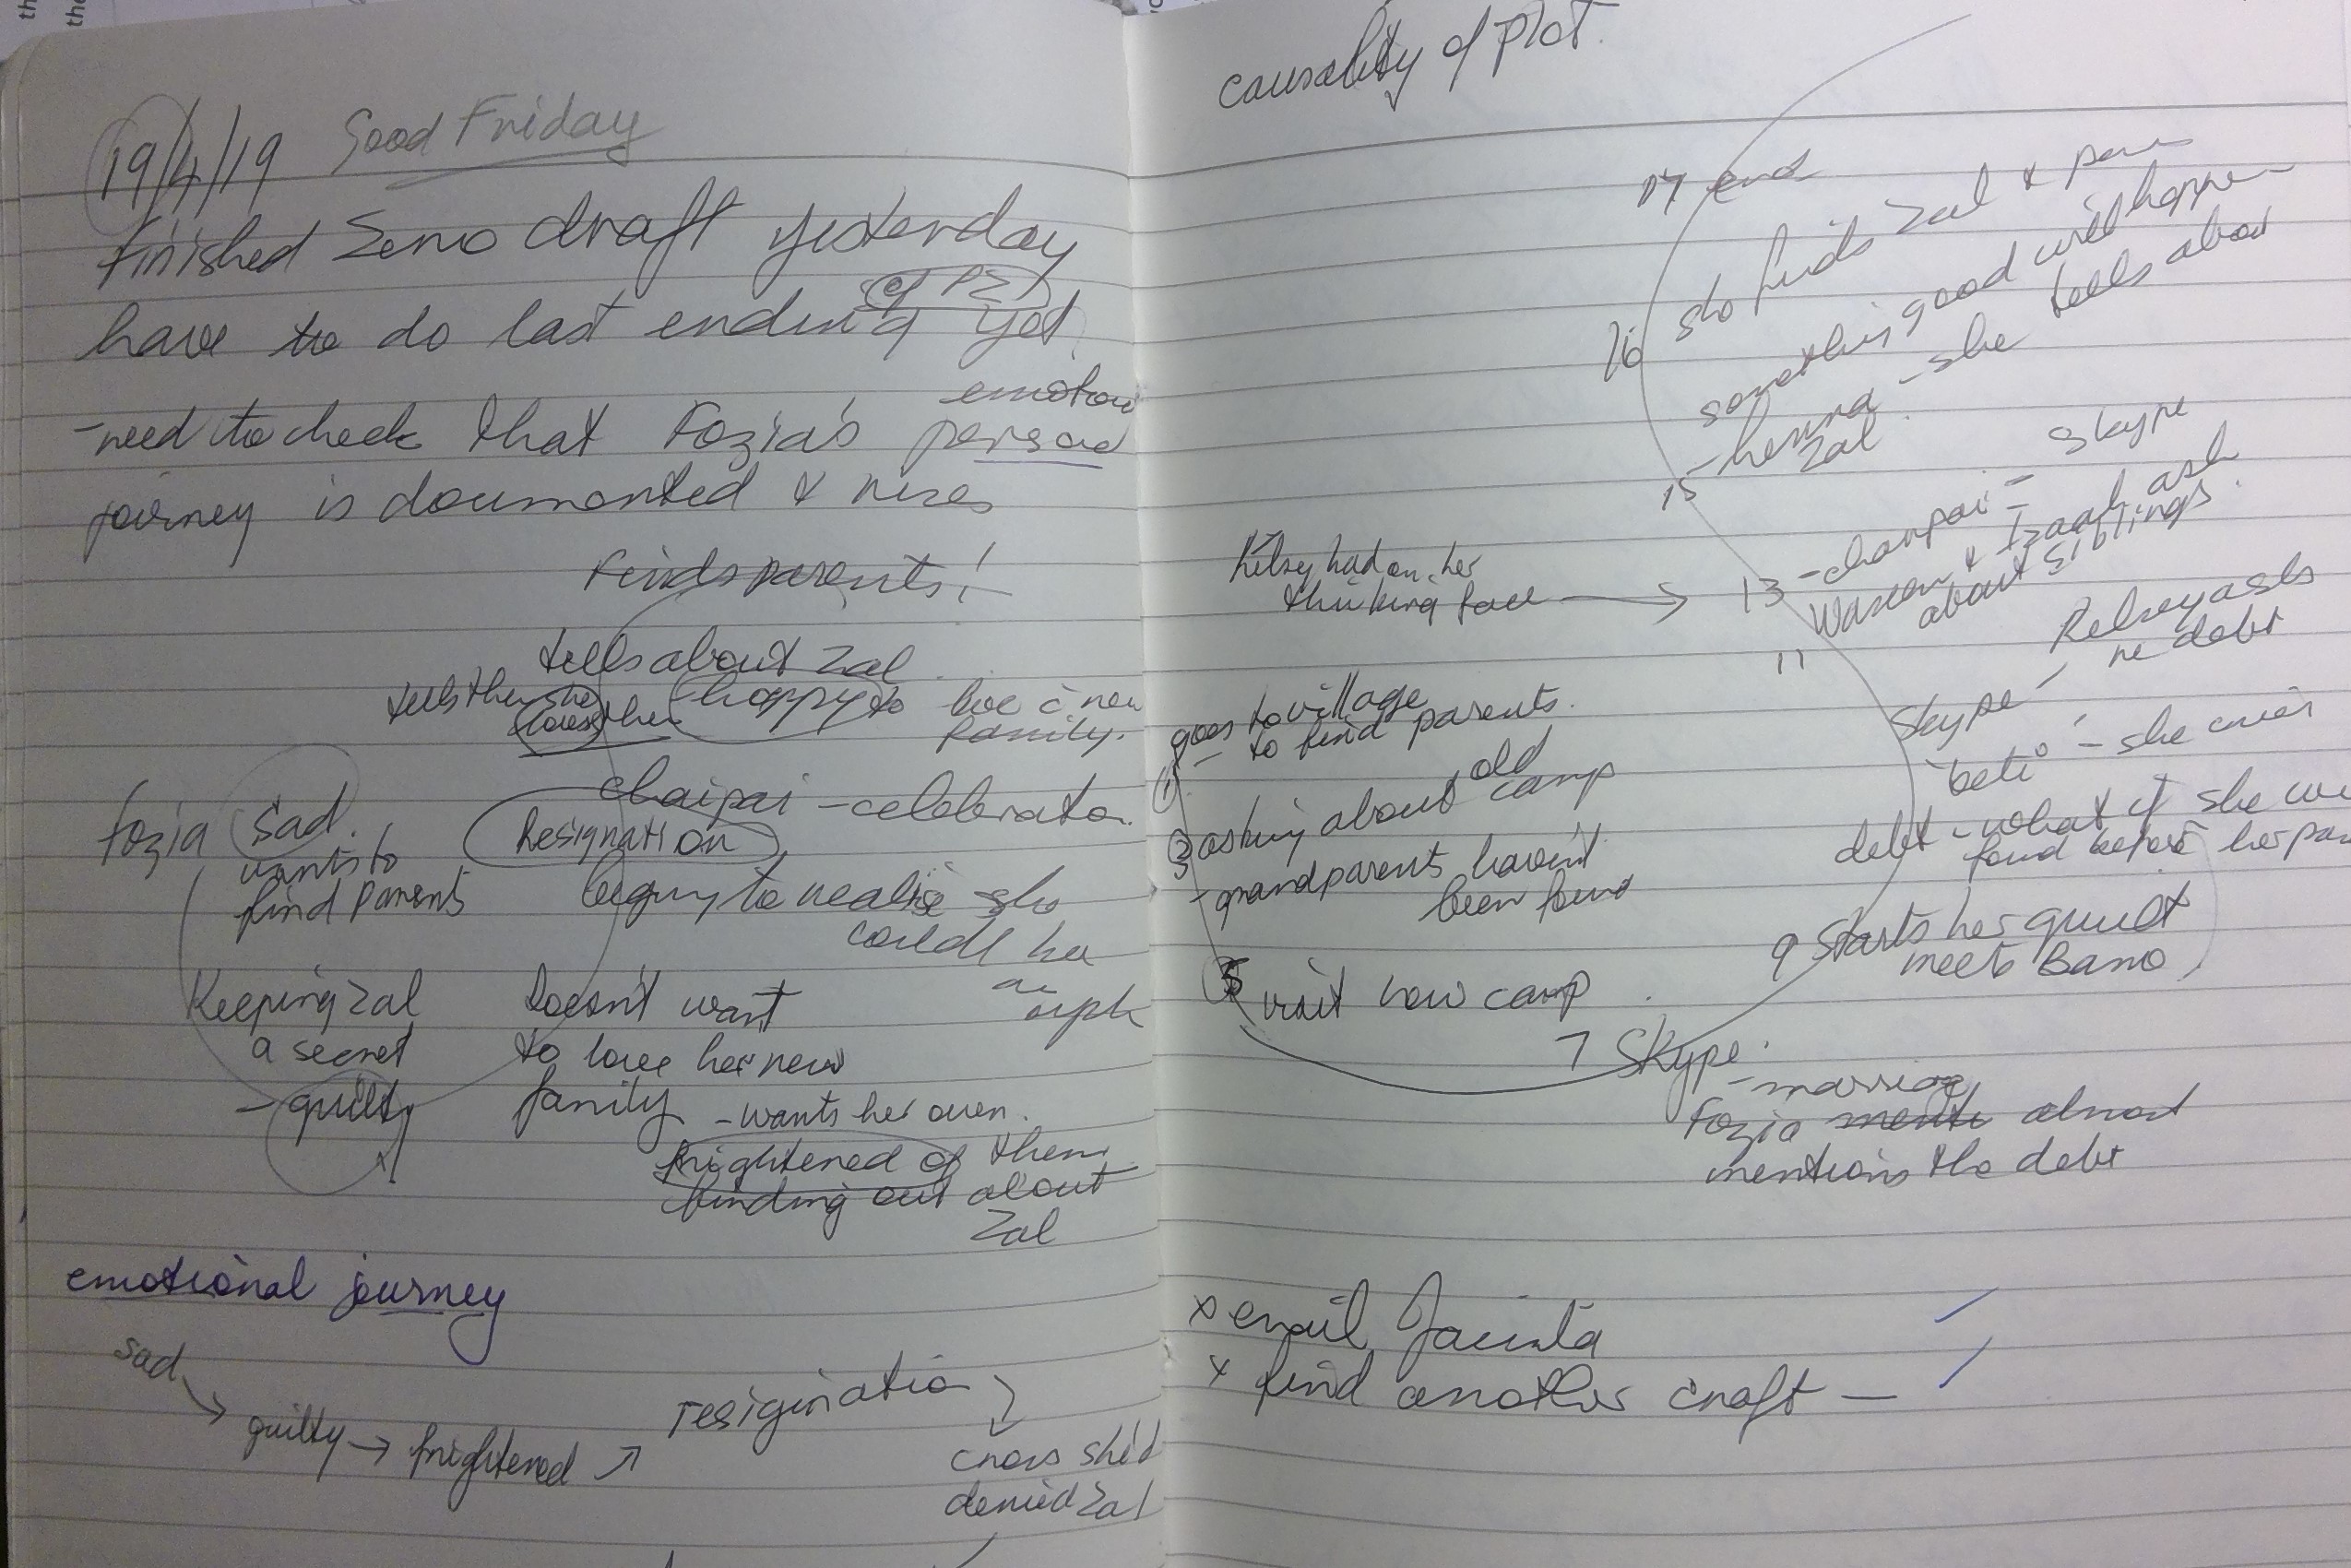 19/4/19 Good Friday
Finished Zero draft yesterday
of PZ
have to do last ending yet
emotion
-need to check that Fozia's
journey is documented & rises
Finds parents!
tells about Zal
tells them she happy to live c̄ new
loves them family.
chaipai - celebration
Fozia sad. Resignation
wants to
find parents begins to realise she
could be
an
Keeping Zal Doesn't want
a secret to love her new
- guilty family - wants her own.
frightened of them
finding out about
Zal
emotional journey
sad
guilty → frightened ↗ resigination
cries she'd
denied Zal
causality of plot.
17 end
16 she finds Zal &
something good will happen
15 - henna - she tells about
Zal
Kelsey had on her
thinking face → 13 - charpai = Skype
& Izaah ask
about siblings.
11
Skype - Kelsey asks
re debt
goes to village
- to find parents.
①
"beti" - she cries
③ asking about old camp
debt - what if she
found before her
- grandparents haven't
been found
9 Starts her quilt
meets Bano
5 visit new camp
7 Skype.
- marriage
Fozia almost
mentions the debt
x email Jacinta
x find another craft -